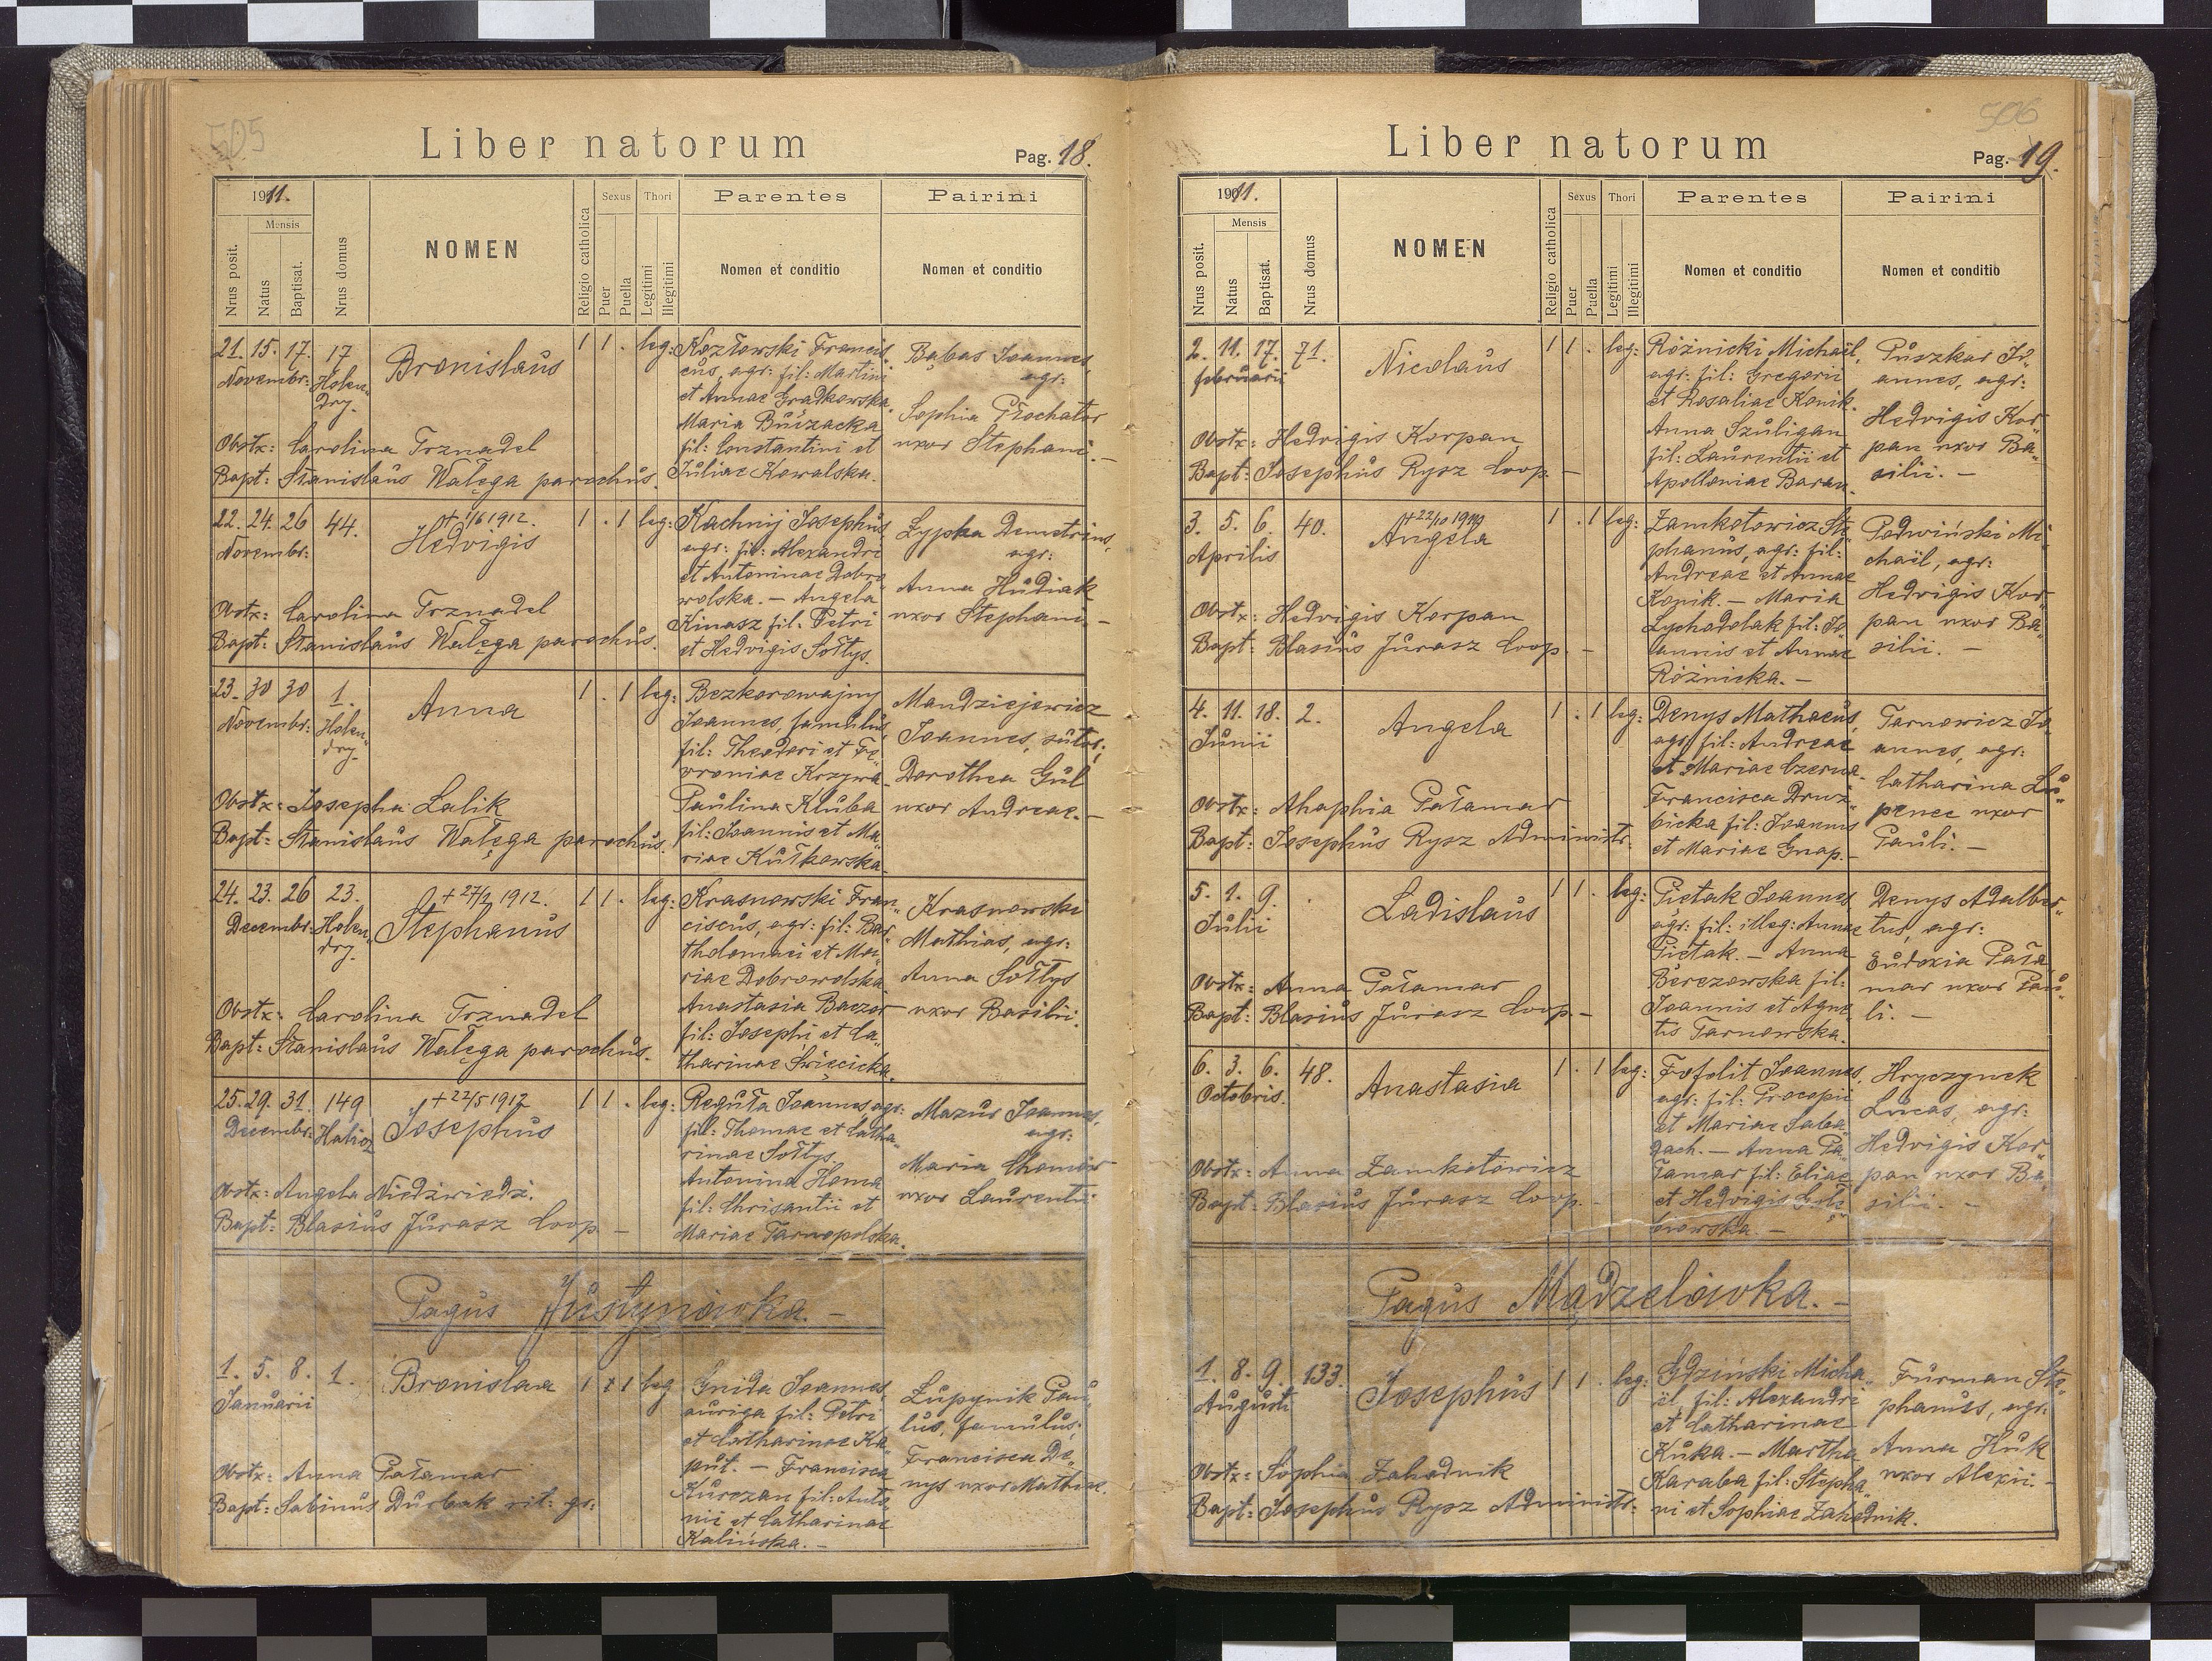 505
Liber natorum
Pag. 18.
1911.
Mensis
Nrus posit.
Natus
Baptisat.
Nrus domus
NOMEN
Religio catholica
Sexus
Puer
Puella
Thori
Legitimi
Illegitimi
Parentes
Nomen et conditio
Pairini
Nomen et conditio
21. 15. 17. 17
Novembr: Holen„
dry.
Bronislaus
1 1 . leg:
Kozłowski Francis„
cus, agr: fil: Martini
et Annae Gradkowska.
Maria Buczacka
fil: Constantini et
Juliae Kowalska.
Babas Joannes,
agr:
Sophia Płochator
uxor Stephani. –
Obstx: Carolina Trznadel
Bapt: Stanislaus Wałęga parochus.
22. 24. 26 44.
Novembr:
+ 1/6 1912.
Hedvigis
1 . 1 leg:
Kachnij Josephus,
agr: fil: Alexandri
et Antoninae Dobro
wolska. – Angela
Kinasz fil: Petri
et Hedvigis Sołtys.
Łypka Demetrius,
agr:
Anna Hudiak
uxor Stephani –
Obstx: Carolina Trznadel
Bapt: Stanislaus Wałęga parochus.
23. 30 30 1.
Novembr: Holen„
dry.
Anna
1 . 1 leg:
Bezkorowajny
Joannes, famulus,
fil: Theodori et Fe„
vroniae Krzywa.
Paulina Kluba
fil: Joannis et Ma„
riae Kułkowska.
Mandziejewicz
Joannes, sutor;
Dorothea Gul
uxor Andreae. –
Obstx: Josepha Lalik
Bapt: Stanislaus Wałęga parochus.
24. 23. 26 23.
Decembr: Holen„
dry.
+ 27/2 1912.
Stephanus
1 1 . leg:
Krasnowski Fran„
ciscus, agr: fil: Bar„
tholomaei et Ma„
riae Dobrowolska.
Anastasia Baczor
fil: Josephi et Ca„
tharinae Święcicka.
Krasnowski
Mathias, agr:
Anna Sołtys
uxor Basilii.
Obstx: Carolina Trznadel
Bapt: Stanislaus Wałęga parochus.
25. 29. 31. 149
Decembr: Halicz
+ 22/5 1912
Josephus
1 1 . leg:
Reguła Joannes, agr:
fil: Thomae et Catha„
rinae Sołtys.
Antonina Homa
fil: Chrisantii et
Mariae Tarnopolska.
Mazur Joannes,
agr:
Maria Chomow
uxor Laurentii
Obstx: Angela Niedźwiedź.
Bapt: Blasius Jurasz Coop. –
Pagus Justynówka. –
1. 5. 8. 1.
Januarii
Bronislaa
1 . 1 leg
Gnida Joannes,
auriga fil: Petri
et Catharinae Ka„
put. – Francisca
Kurczan fil: Anto
nii et Catharinae
Kalińska. –
Łupynik Pau„
lus, famulus;
Francisca De„
nys uxor Mathiae.
Obstx: Anna Pałamar
Bapt: Sabinus Durbak rit: gr:
506
Liber natorum
Pag. 19.
1911.
Mensis
Nrus posit.
Natus
Baptisat.
Nrus domus
NOMEN
Religio catholica
Sexus
Puer
Puella
Thori
Legitimi
Illegitimi
Parentes
Nomen et conditio
Pairini
Nomen et conditio
2. 11. 17. 71.
februarii
Nicolaus
1 1 . leg:
Różnicki Michaël,
agr: fil: Gregorii
et Rosaliae Konik.
Anna Szuligan
fil: Laurentii et
Apolloniae Baran.
Puszkar Jo„
annes, agr:
Hedvigis Kor„
pan uxor Ba„
silii. –
Obstx: Hedvigis Korpan
Bapt: Josephus Rysz Coop. –
3. 5. 6. 40.
Aprilis
Angela
1 . 1 leg:
Zamkotowicz Ste„
phanus, agr: fil:
Andreae et Annae
Konik. – Maria
Lychodolak fil: Jo„
annis et Annae
Różnicka. –
Podwiński Mi„
chaël, agr:
Hedvigis Kor„
pan uxor Ba„
silii. –
Obstx: Hedvigis Korpan
Bapt: Blasius Jurasz Coop. –
4. 11. 18. 2.
Junii
Angela
1 . 1 leg:
Denys Mathaeus,
agr: fil: Andreae
et Mariae Czerna.
Francisca Druz„
bicka fil: Joannis
et Mariae Gnap. –
Tarnowicz Jo„
annes, agr:
Catharina Lu„
penec uxor
Pauli. –
Obstx: Ahaphia Pałamar
Bapt: Josephus Rysz Administr.
5. 1. 9. .
Julii
Ladislaus
1 1 . leg:
Piętak Joannes,
agr: fil: illeg: Annae
Piętak. – Anna
Berezowska fil:
Joannis et Agne„
tis Tarnowska.
Denys Adalber„
tus, agr:
Eudoxia Pała„
mar uxor Pau„
li. –
Obstx: Anna Pałamar
Bapt: Blasius Jurasz Coop. –
6. 3. 6. 48.
Octobris.
Anastasia
1 . 1 leg:
Fofolit Joannes,
agr: fil: Procopii
et Mariae Saba„
dach. – Anna Pa„
łamar fil: Eliae
et Hedvigis Gołę„
biowska. –
Hryczynek
Lucas, agr:
Hedvigis Kor„
pan uxor Ba„
silii. –
Obstx: Anna Zamkotowicz
Bapt: Blasius Jurasz Coop. –
Pagus Mądzelówka. –
1. 8. 9. 133.
Augusti
Josephus
1 1 . leg:
Gdziński Micha„
ël, fil: Alexandri
et Catharinae
Kuka. – Martha
Karaba fil: Stepha„
ni et Sophiae Zahodnik.
Furman Ste„
phanus, agr:
Anna Huk
uxor Alexii. –
Obstx: Sophia Zahodnik
Bapt: Josephus Rysz Administr.